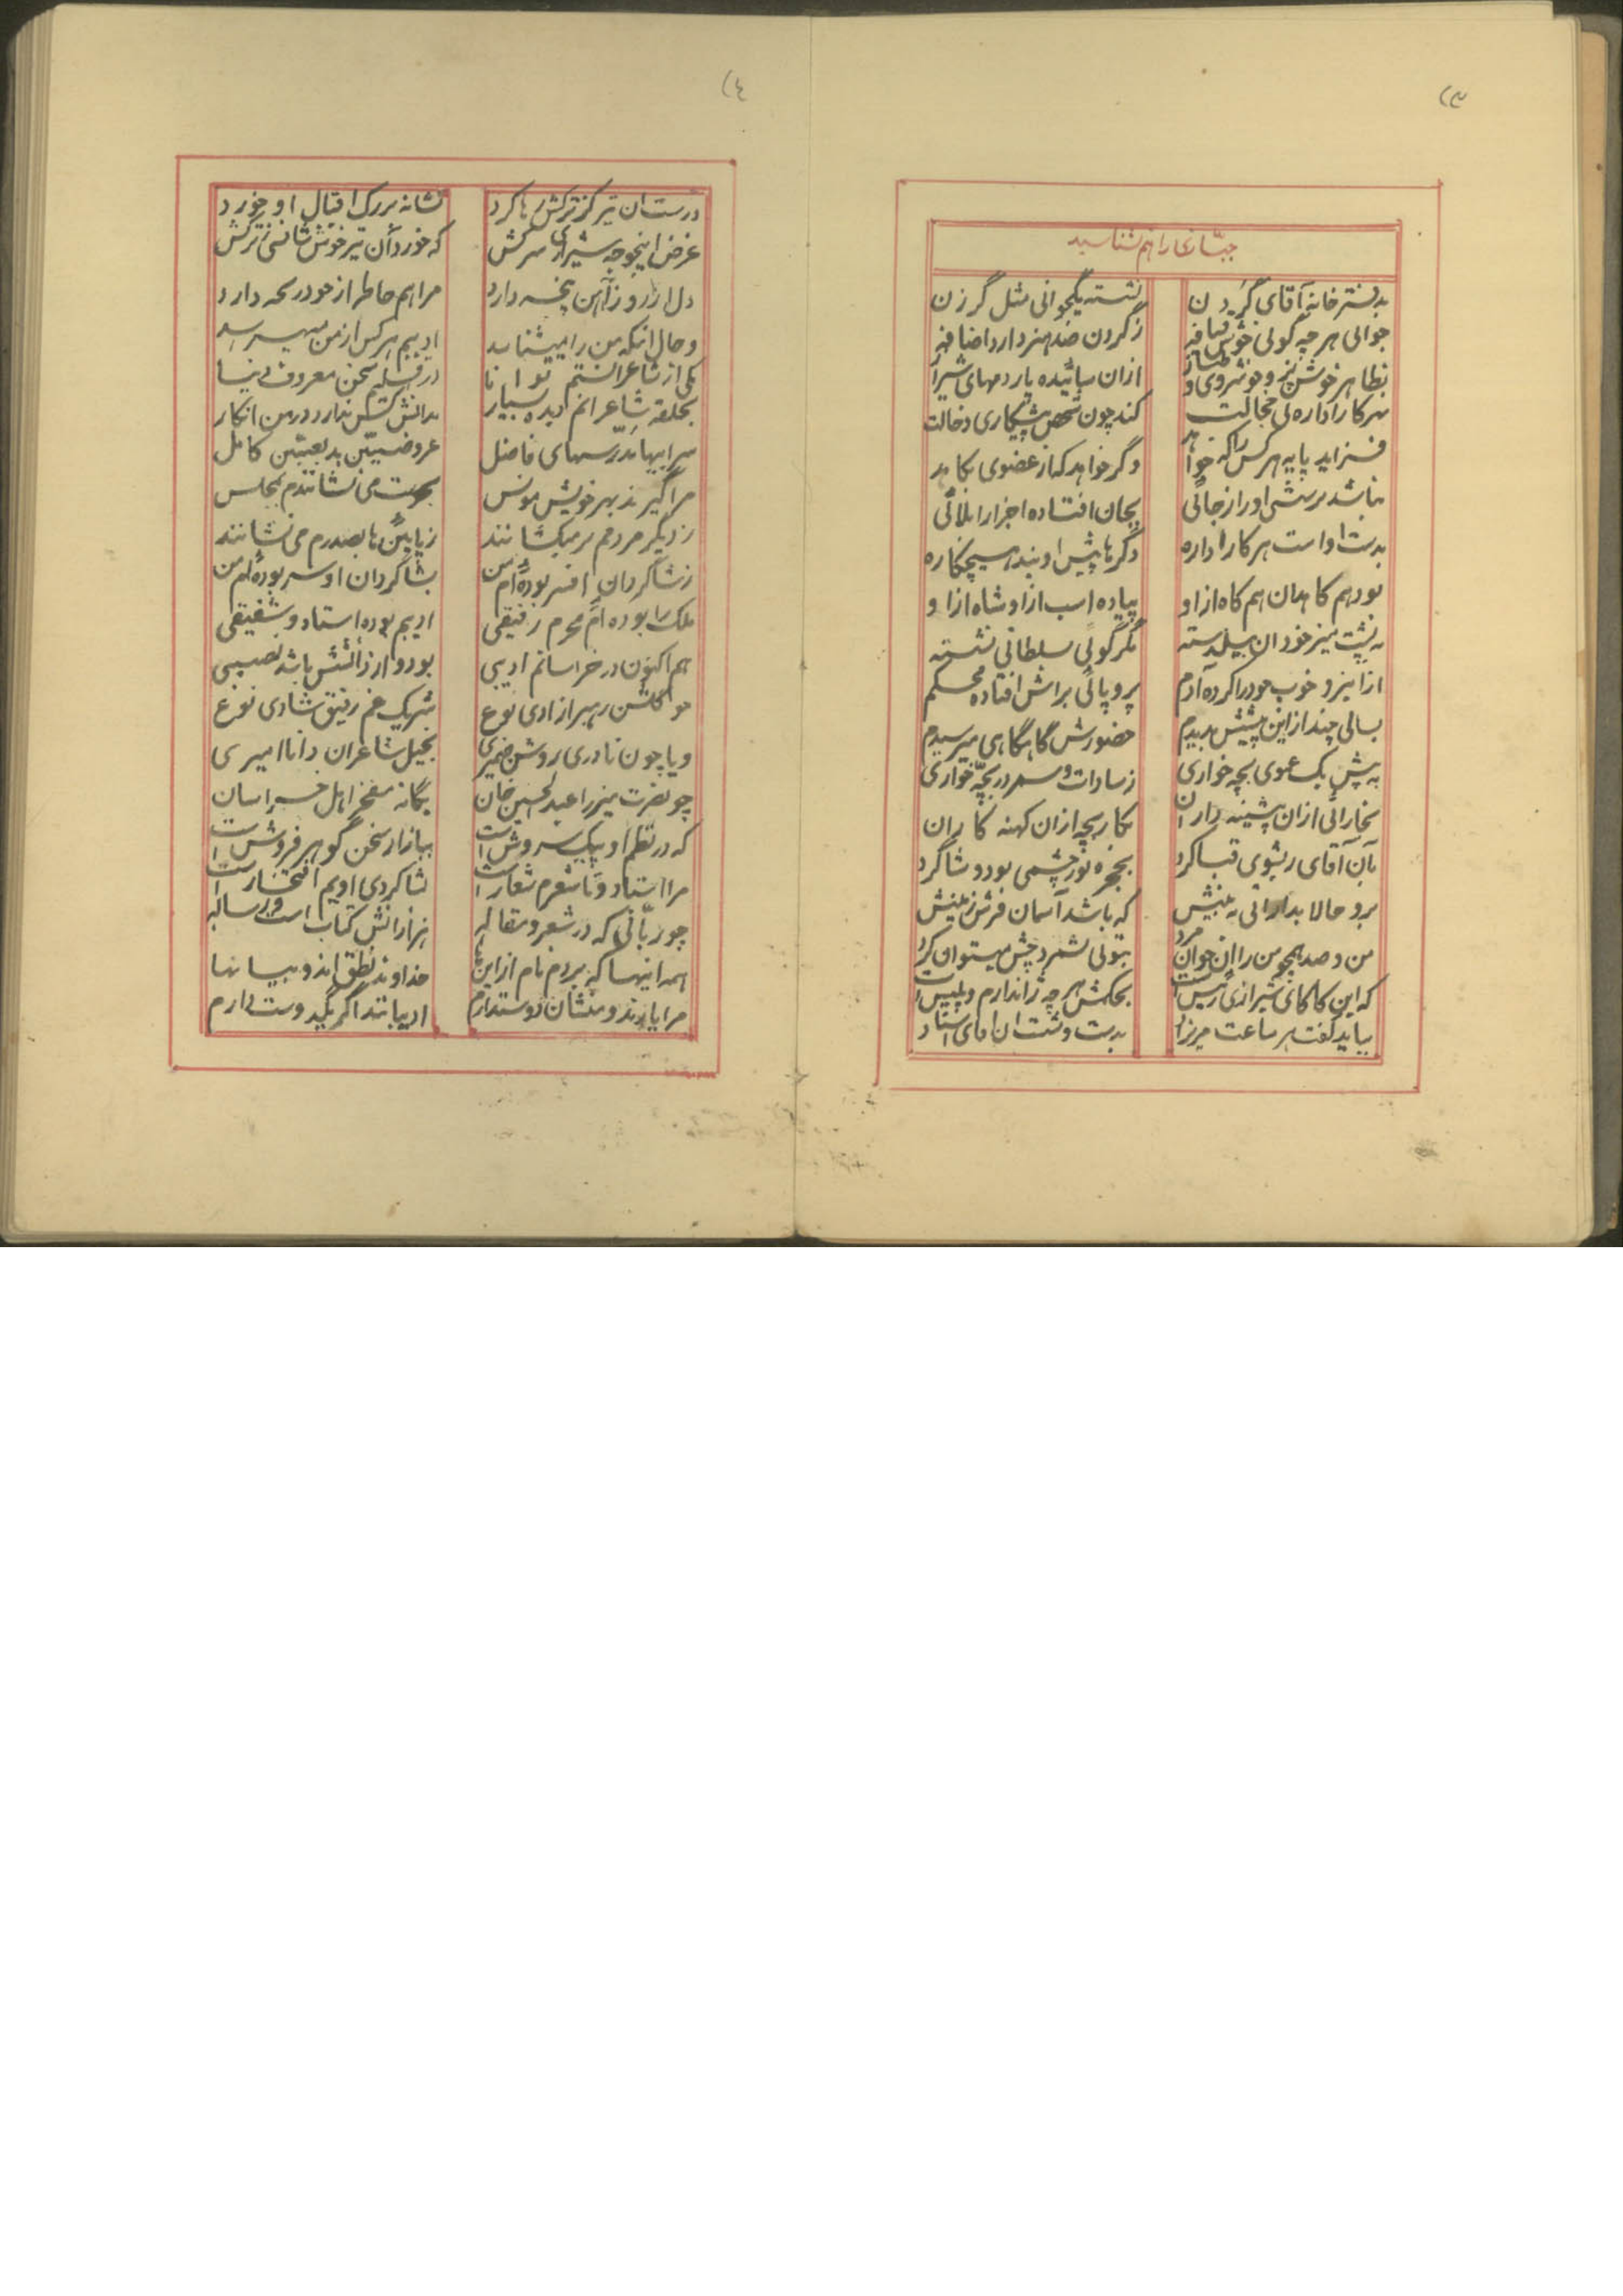 (۳
جناب را هم بشناسید
بدفترخانه آقای گردن نشسته یکجوانی مثل گرزن
جوانی هر چه گوئی خوش قیافه ز گردن صد هنر دارد اضافه
بظاهر خوش پز و خوشروی و طناز ازان سائیده پاردمهای شیراز
بهر کار اداره بی خجالت کند چون شخص پیشکاری دخالت
فزاید پایه هر کس را که خواهد وگر خواهد که از عضوی بکاهد
نباشد پرسشی او را ز جائی بجان افتاده اجزا را بلائی
بدست او است هر کار اداره دگرها پیش او بنده هیچکاره
بود هم کاهدان هم کاه از او پیاده اسب از او شاه از او
به پشت میز خود ان بیلدسته مگر گوئی سلطانی نشسته
از این رو خوب خود را کرده آدم پر و پائی براش افتاده محکم
بسالی چند از این پیشش بدیدم حضورش گاهگاهی میرسیدم
به پیش یک عموی بچه خواری ز سادات و سمر در بچه خواری
بخارائی ازان پشینه داران بکار بچه ازان کهنه کاران
بآن آقای ریشوی قبا گرد بحجره نور چشمی بود و شاگرد
برو حالا بدارائی به بینش که باشد آسمان فرش زمینش
من و صد همچو من را ان جوان مرد بتوئی نشمرد چش میتوان کرد
که این کاکای شیرازی رئیس است بحکمش هر چه ژاندارم و پلیس است
بباید گفت هر ساعت مریزاد بدست و شست ان اقای استاد
(٤
درست ان تیر کز ترکش رها کرد نشانه بزرگ اقبال او خورد
غرض اینجوجه شیرازی سرکش که خورد آن تیر خوش شانسی ز ترکش
دل از رو ز آهن پنجه دارد مرا هم خاطر از خود رنجه دارد
و حال آنکه من را میشناسد ادیبم هر کس از من میهراسد
یکی از شاعرانستم توانا در اقلیم سخن معروف دنیا
بحلقه شاعرانم دیده بسیار بدانش کس ندارد در من انکار
سرابیها مدرسهای فاضل عروضیین بدیعیین کامل
مرا گیرند بهر خویش مونس بحرمت می نشانندم بمجلس
ز دیگر مردمم برمیکشانند ز پایین ها بصدرم می نشانند
ز شاگردان افسر بوده ام من بشاگردان او سر بوده ام من
ملک را بوده ام محرم رفیقی ادیبم بوده استاد و شفیقی
هم اکنون در خراسانم ادیبی بود و از دانشش باشد نصیبی
چو گلشن رهبر ازادی نوع شریک غم رفیق شادی نوع
و یا چون نادری روشن ضمیری بخیل شاعران دانا امیری
چو نصرت میرزا عبدالحسین خان یگانه مفخر اهل خراسان
که در نظم او پیک سروش است ببازار سخن گوهر فروش است
مرا استاد و تا شعرم شعار است بشاگردی اویم افتخار است
چو ربانی که در شعر و مقاله هزارانش کتاب است و رساله
همه اینها که بردم نام از اینها خداوند نطق اند و بیانها
مرا یارند و منشان دوستدارم ادیبانند اگر یکدوست دارم